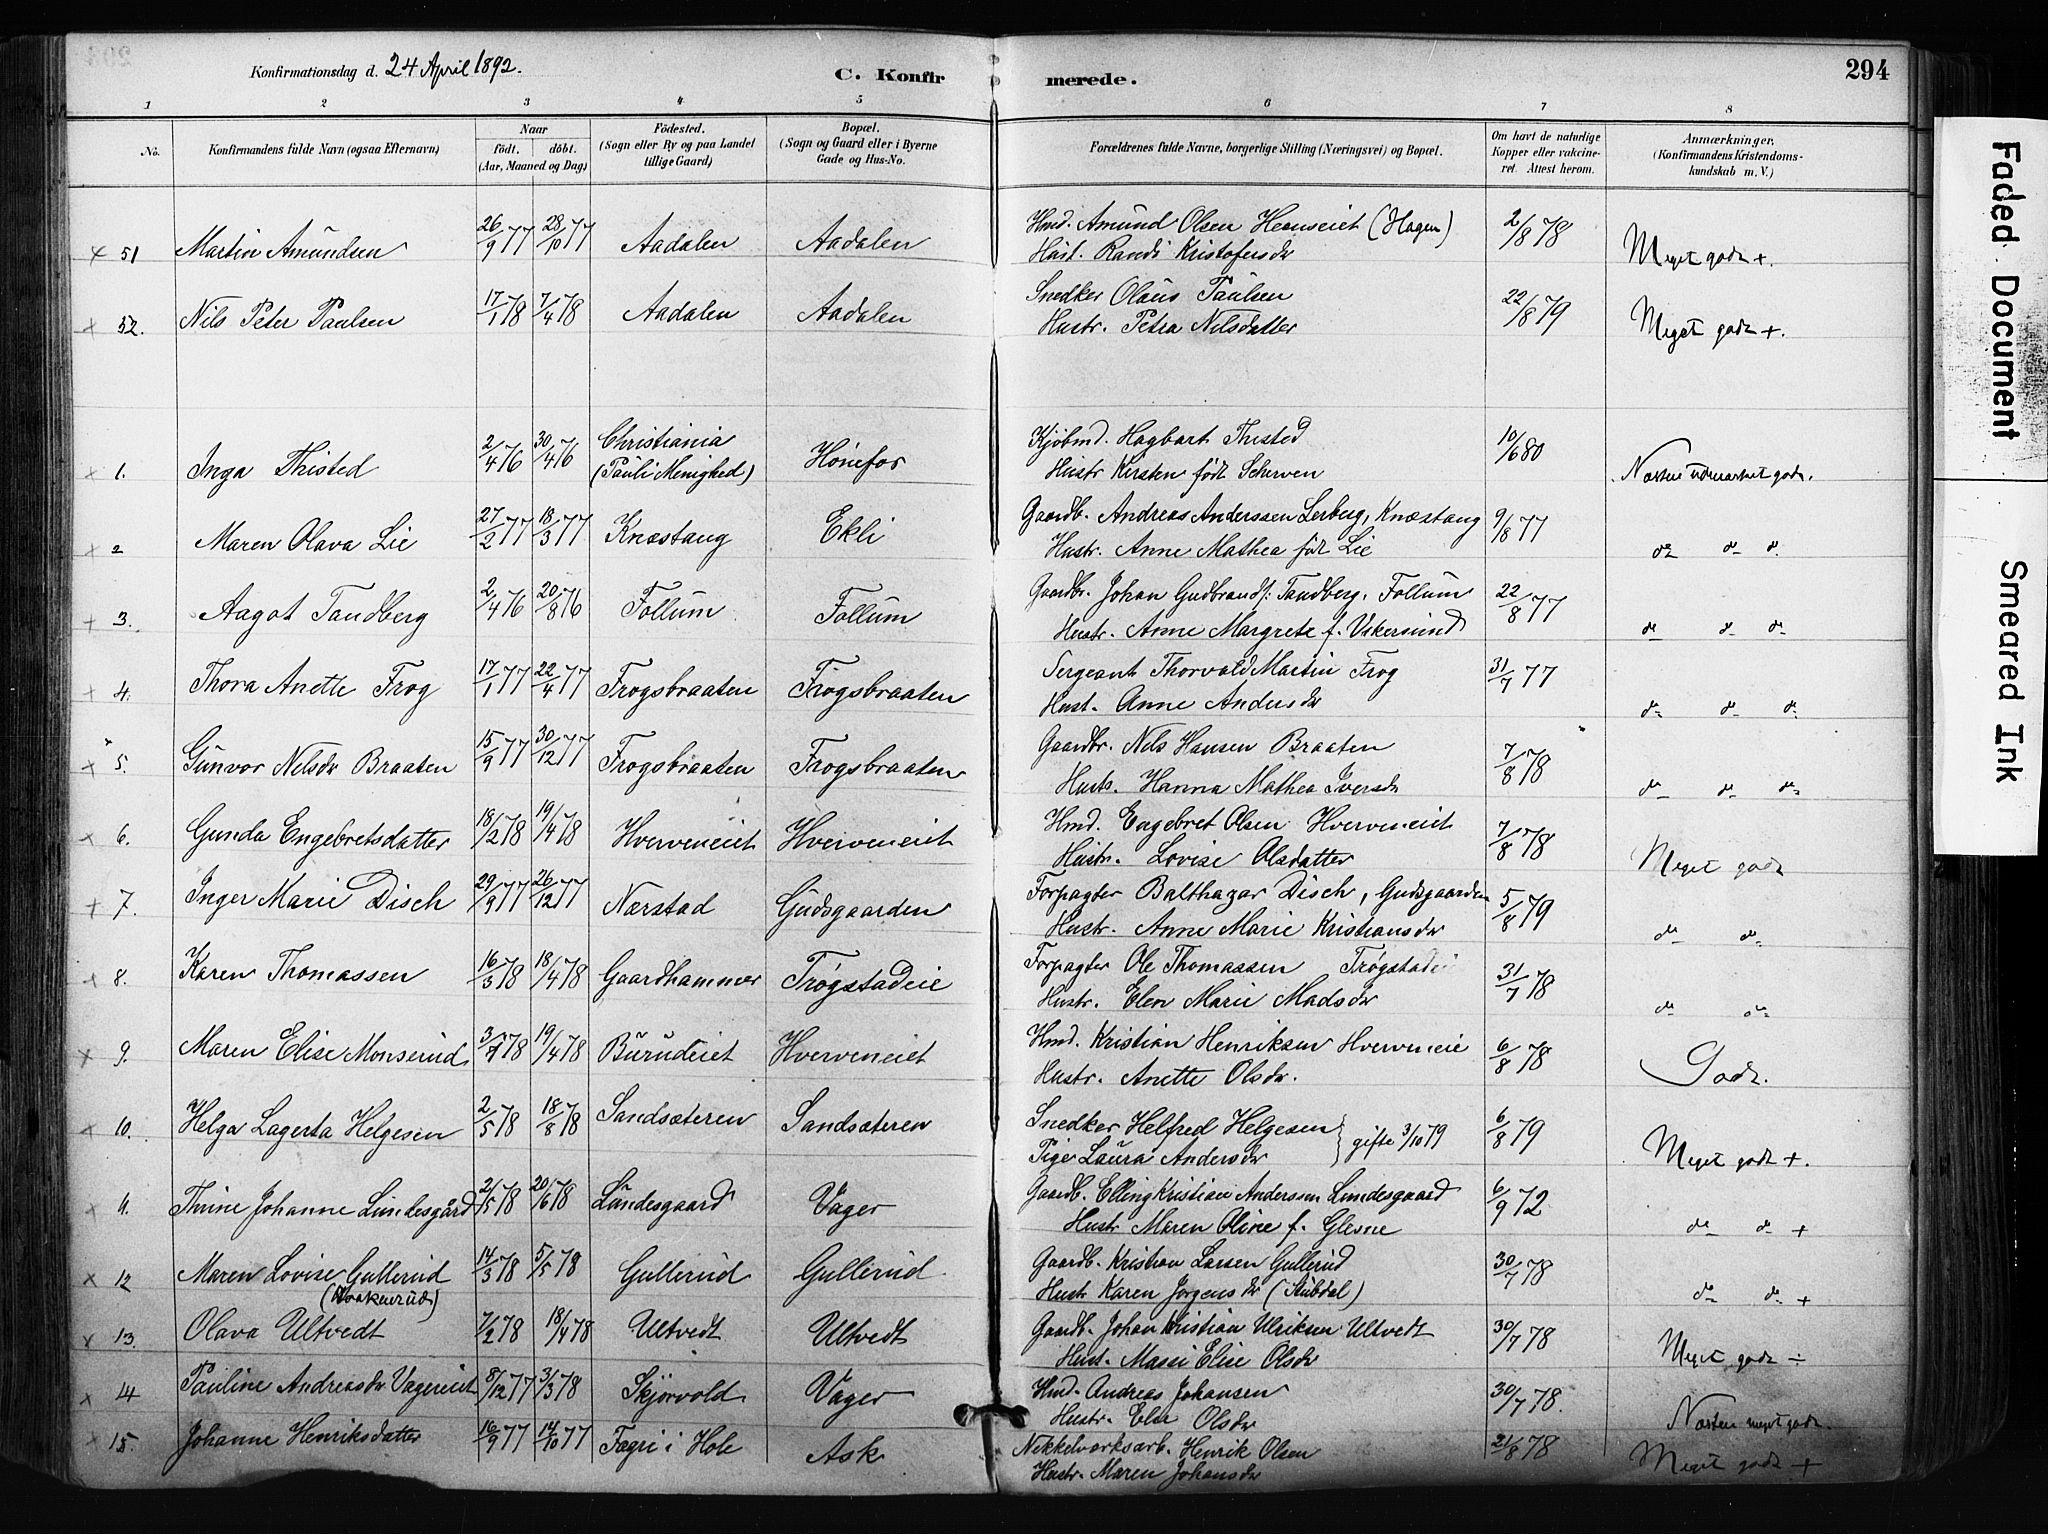 Konfirmationsdag d. 24 April 1892. C. Konfirmerede. 294
1 2 3 4 5 6 7 8
No. Konfirmandens fulde Navn (ogsaa Efternavn) Naar födt. döbt. (Aar, Maaned og Dag) Födested. (Sogn eller By og paa Landet tillige Gaard) Bopæl. (Sogn og Gaard eller i Byerne Gade og Hus-No. Forældrenes fulde Navne, borgerlige Stilling (Næringsvei) og Bopæl. Om havt de naturlige Kopper eller vakcineret. Attest herom. Anmærkninger. (Konfirmandens Kristendomskundskab m. V.)
x 51 Martin Amundsen 26/9 77 28/10 77 Aadalen Aadalen Hmd. Amund Olsen (Hagen) 2/8 78 Meget godt +.
Hust. Randi Kristofersdr
x 52. Nils Peter Paulsen 17/1 78 7/4 78 Aadalen Aadalen Snedker Olaus Paulsen 22/8 79 Meget godt +.
Hustr. Petra Nilsdatter
x 1. Inga Thisted 2/4 76 30/4 76 Christiania (Pauli Menighed) Hønefos Kjöbmd. Hagbart Thisted 10/6 80 Næsten udmærket godt.
Hustr Kirsten født Scherven
x 2 Maren Olava Lie 27/2 77 18/3 77 Knæstang Ekli Gaardb. Andreas Anderssen Lerberg, Knæstang 9/8 77 do do do
Hustr. Anne Mathea født Lie
+ 3. Aagot Tandberg 2/4 76 20/8 76 Follum Follum Gaardbr. Johan Gudbrands: Tandberg. Follum 22/8 77 do do do
Hustr. Anne Margrete f. Vikersund
x 4. Thora Anette Frog 17/1 77 22/4 77 Frogsbraaten Frogsbraaten Sergeant Thorvald Martin Frog 31/7 77 do do do
Hust. Anne Andersdr
x 5. Gunvor Nelsdr Braaten 15/9 77 30/12 77 Frogsbraaten Frogsbraaten Gaardbr. Nels Hansen Braaten 7/8 78 do do do
Hustr. Hanna Mathea Iversdr
x 6. Gunda Engebretsdatter 18/2 78 19/4 78 Hverveneiet Hverveneiet Hmd. Engebret Olsen Hverveneiet 7/8 78 Meget godt
Hustr. Lovise Olsdatter
+ 7. Inger Marie Disch 29/9 77 26/12 77 Nærstad Gudsgaarden Forpagter Balthazar Disch, Gudsgaarden 5/8 79 do do
Hustr. Anne Marie Kristiansdr
x 8. Karen Thomassen 16/3 78 18/4 78 Gaardhammer Trøgstadeie Forpagter Ole Thomassen Trøgstadei 31/7 78 do do
Hustr. Elen Marie Madsdr
x 9. Maren Elise Monserud 19/4 78 Burudeiet Hverveneiet Hmd. Kristian Henriksen Hverveneie 6/8 78 Godt.
Hustr. Anette Olsdr.
x 10. Helga Lagerta Helgesen 2/5 78 18/8 78 Sandsæteren Sandsæteren Snedker Helfred Helgesen } gifte 3/10 79 6/8 79 Meget godt +.
Pige Laura Andersdr
x 11. Thine Johanne Lundesgård 2/5 78 20/6 78 Lundesgaard Vager Gaardb. Elling Kristian Anderssen Lundesgaard 6/9 72 do do +
Hustr Maren Oline f. Glesne
x 12 Maren Lovise Gullerud 14/3 78 5/5 78 Gullerud Gullerud Gaardb. Kristian Larsen Gullerud 30/7 78 do do +
Hustr Karen Jørgensdr (Stubdal)
x 13. Olava Ultvedt 7/2 78 18/4 78 Ultvedt Ultvedt Gaardb. Johan Kristian Ulriksen Ultvedt 30/7 78 Meget godt ÷
Hust. Massi Elise Olsdr
x 14 Pauline Andreasdr Vagereiet 8/12 77 3/3 78 Skjørvold Vager Hmd. Andreas Johansen 30/7 78. Næsten meget godt.
Hustr. Else Olsdr
x 15. Johanne Henriksdatter 16/9 77 14/10 77 Fagri i Hole Ask Nikkelværksarb. Henrik Olsen 21/8 78 Meget godt +
Hustr. Maren Johansdr
Faded Document
Smeared Ink